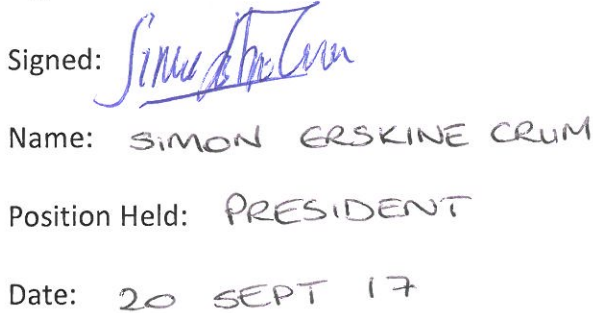 Signed:
Name: SIMON ERSKINE CRUM
Position Held: PRESIDENT
Date: 20 SEPT 17